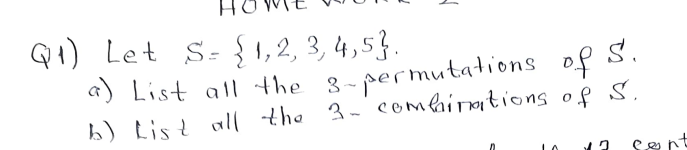 HOME WORK 2
Q1) Let S = {1, 2, 3, 4, 5}.
a) List all the 3-permutations of S.
b) List all the 3-combinations of S.